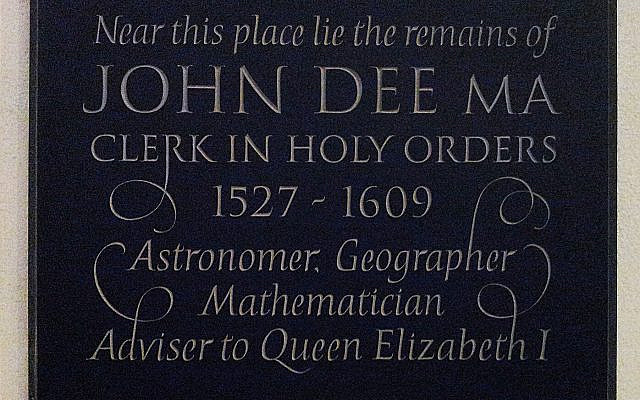 Near this place lie the remains of
JOHN DEE MA
CLERK IN HOLY ORDERS
1527 ~ 1609
Astronomer. Geographer
Mathematician
Adviser to Queen Elizabeth I